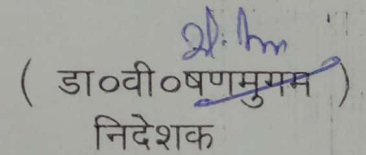 ( डा०वी०षणमुगम )
निदेशक